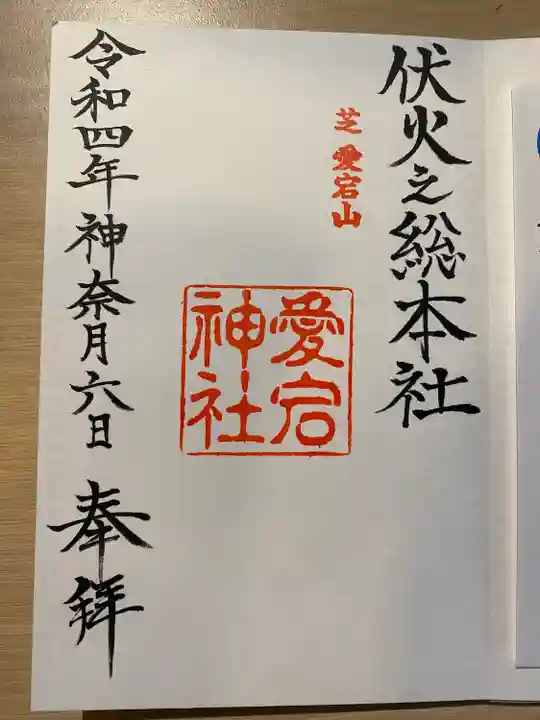 伏火之総本社
芝 愛宕山
愛宕
神社
令和四年神奈月六日
奉拝